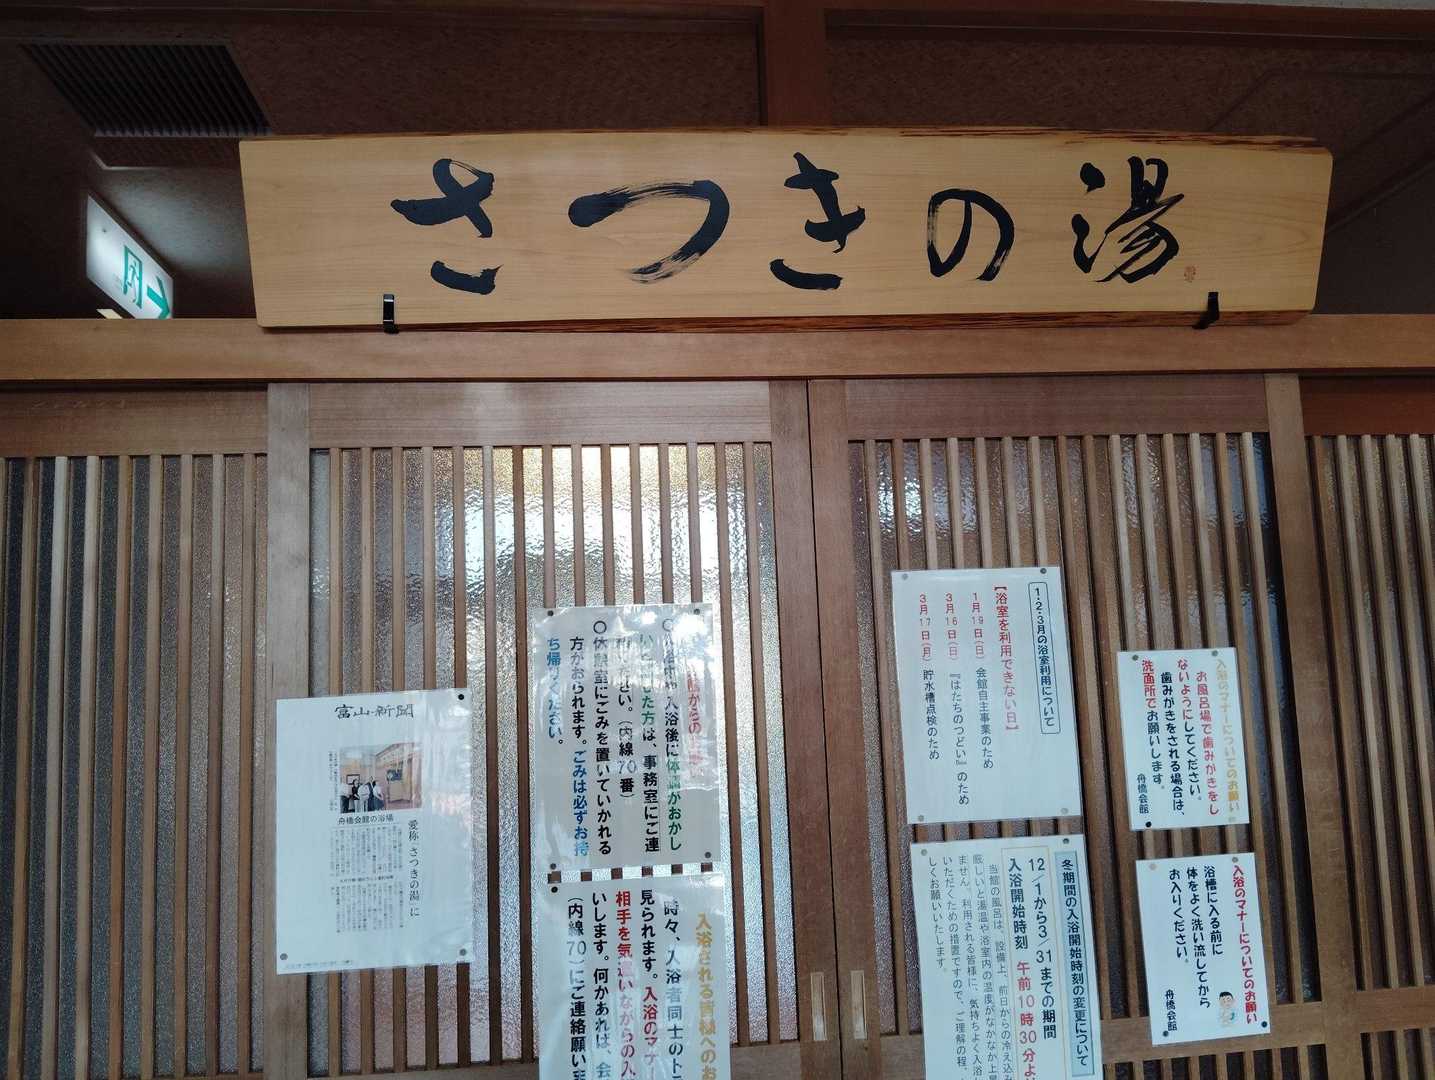 さつきの湯
富山新聞
舟橋会館の浴場
愛称「さつきの湯」に
入浴後に体調がおかし
いと感じた方は、事務室にご連
ださい。(内線70番)
〇休憩室にごみを置いていかれる
方がおられます。ごみは必ずお持
ち帰りください。
入浴される皆様へのお
時々、入浴者同士のトラ
見られます。入浴のマナー
相手を気遣いながらの入
いします。何かあれば、会
(内線70)にご連絡願いま
1・2・3月の浴室利用について
【浴室を利用できない日】
1月19日(日) 会館自主事業のため
3月16日(日) 『はたちのつどい』のため
3月17日(月) 貯水槽点検のため
冬期間の入浴開始時刻の変更について
12/1から3/31までの期間
入浴開始時刻 午前10時30分よ
当館の風呂は、設備上、前日からの冷え込み
厳しいと湯温や浴室内の温度がなかなか上
ません。利用される皆様に、気持ちよく入浴
いただくための措置ですので、ご理解の程、
しくお願いいたします。
入浴のマナーについてのお願い
お風呂場で歯みがきをし
ないようにしてください。
歯みがきをされる場合は、
洗面所でお願いします。
舟橋会館
入浴のマナーについてのお願い
浴槽に入る前に
体をよく洗い流してから
お入りください。
舟橋会館